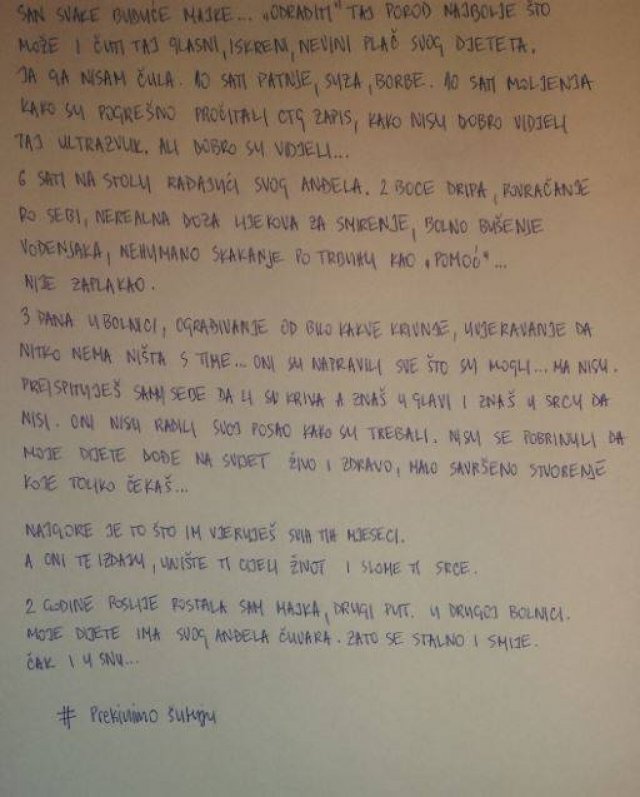 SAN SVAKE BUDUĆE MAJKE... „ODRADITI" TAJ POROD NAJBOLJE ŠTO
MOŽE I ČUTI TAJ GLASNI, ISKRENI, NEVINI PLAČ SVOG DJETETA.
JA GA NISAM ČULA. 10 SATI PATNJE, SUZA, BORBE. 10 SATI MOLJENJA
KAKO SU POGREŠNO PROČITALI CTG ZAPIS, KAKO NISU DOBRO VIDJELI
TAJ ULTRAZVUK. ALI DOBRO SU VIDJELI...
6 SATI NA STOLU RAĐAJUĆI SVOG ANĐELA. 2 BOCE DRIPA, POVRAĆANJE
PO SEBI, NEREALNA DOZA LIJEKOVA ZA SMIRENJE, BOLNO BUŠENJE
VODENJAKA, NEHUMANO SKAKANJE PO TRBUHU KAO „POMOĆ"...
NIJE ZAPLAKAO.
3 DANA U BOLNICI, OGRAĐIVANJE OD BILO KAKVE KRIVNJE, UVJERAVANJE DA
NITKO NEMA NIŠTA S TIME... ONI SU NAPRAVILI SVE ŠTO SU MOGLI... MA NISU.
PREISPITUJEŠ SAMU SEBE DA LI SI KRIVA A ZNAŠ U GLAVI I ZNAŠ U SRCU DA
NISI. ONI NISU RADILI SVOJ POSAO KAKO SU TREBALI. NISU SE POBRINULI DA
MOJE DIJETE DOĐE NA SVIJET ŽIVO I ZDRAVO, MALO SAVRŠENO STVORENJE
KOJE TOLIKO ČEKAŠ...
NAJGORE JE TO ŠTO IM VJERUJEŠ SVIH TIH MJESECI.
A ONI TE IZDAJU, UNIŠTE TI CIJELI ŽIVOT I SLOME TI SRCE.
2 GODINE POSLIJE POSTALA SAM MAJKA, DRUGI PUT. U DRUGOJ BOLNICI.
MOJE DIJETE IMA SVOG ANĐELA ČUVARA. ZATO SE STALNO I SMIJE.
ČAK I U SNU...
# Prekinimo šutnju